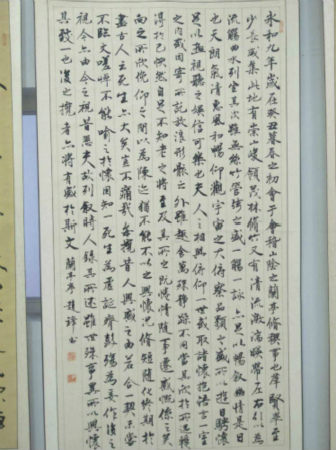 永和九年歲在癸丑暮春之初會于會稽山陰之蘭亭修禊事也羣賢畢至
少長咸集此地有崇山峻領茂林脩竹又有清流激湍映帶左右引以為
流觴曲水列坐其次雖無絲竹管弦之盛一觴一詠亦足以暢敘幽情是日
也天朗氣清惠風和暢仰觀宇宙之大俯察品類之盛所以遊目騁懷
足以極視聽之娛信可樂也夫人之相與俯仰一世或取諸懷抱悟言一室
之內或因寄所託放浪形骸之外雖趣舍萬殊靜躁不同當其欣於所遇暫
得於己快然自足不知老之將至及其所之既惓情隨事遷感慨係之矣
向之所欣俛仰之間以為陳迹猶不能不以之興懷況脩短隨化終期於
盡古人云死生亦大矣豈不痛哉每攬昔人興感之由若合一契未嘗
不臨文嗟悼不能喻之於懷固知一死生為虛誕齊彭殤為妄作後之
視今亦由今之視昔悲夫故列敘時人錄其所述雖世殊事異所以興懷
其致一也後之攬者亦將有感於斯文 蘭亭序 趙 書